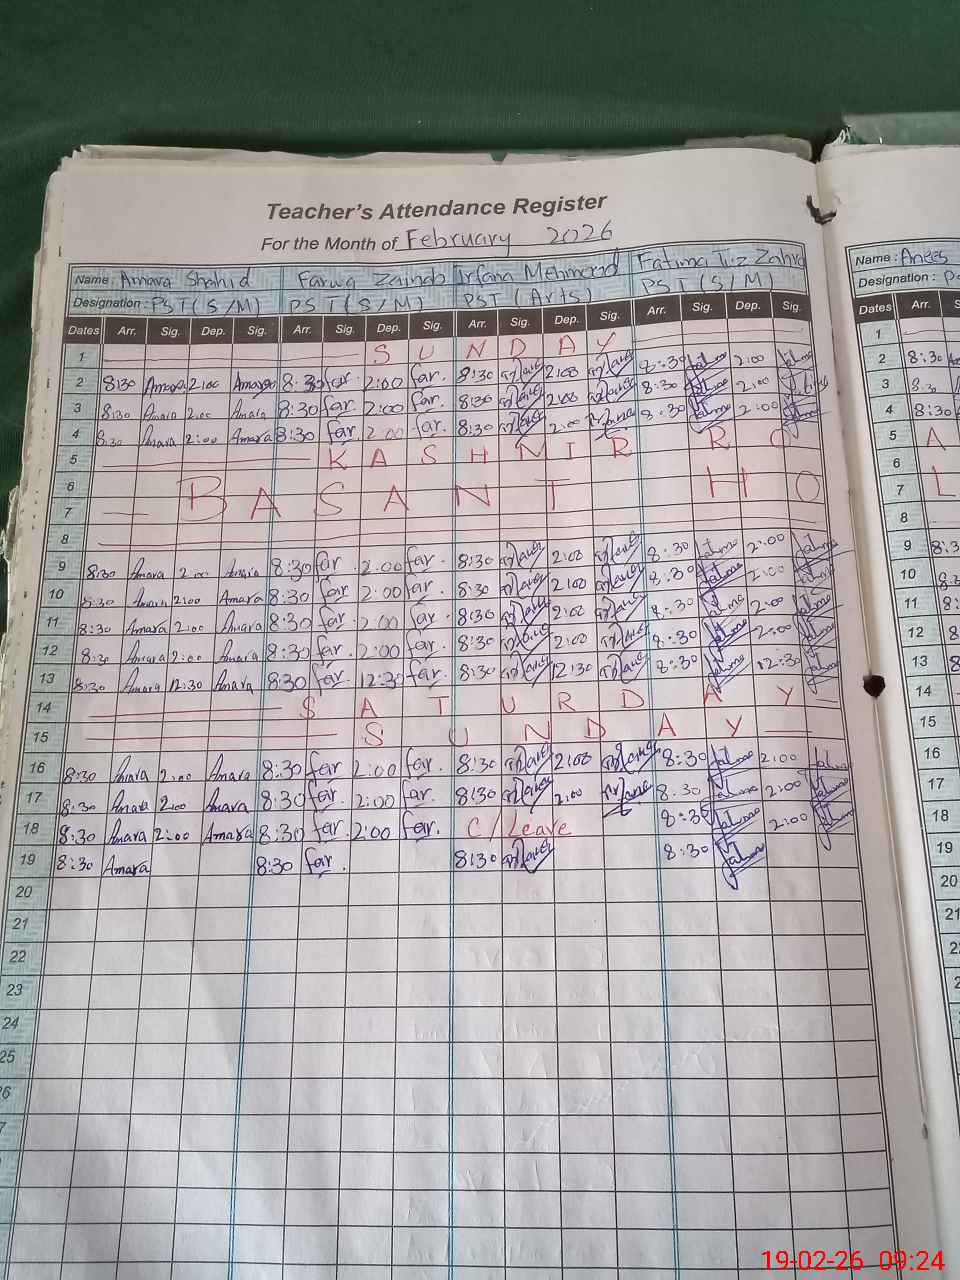 Teacher's Attendance Register
For the Month of February 2026
Name: Amara Shahid Farwa Zainab Irfana Mehmood Fatima Tuz Zahra
Designation: PST (S/M) PST (S/M) PST (Arts) PST (S/M)
Dates Arr. Sig. Dep. Sig. Arr. Sig. Dep. Sig. Arr. Sig. Dep. Sig. Arr. Sig. Dep. Sig.
1 SUNDAY
2 8:30 Amara 2:00 Amara 8:30 far. 2:00 far. 8:30 2:00 8:30 2:00
3 8:30 Amara 2:00 Amara 8:30 far. 2:00 far. 8:30 2:00 8:30 2:00
4 8:30 Amara 2:00 Amara 8:30 far. 2:00 far. 8:30 2:00 8:30 2:00
5 KASHMIR
6
7 BASANT HO
8
9 8:30 Amara 2:00 Amara 8:30 far. 2:00 far. 8:30 2:00 8:30 2:00
10 8:30 Amara 2:00 Amara 8:30 far. 2:00 far. 8:30 2:00 8:30 2:00
11 8:30 Amara 2:00 Amara 8:30 far. 2:00 far. 8:30 2:00 8:30 2:00
12 8:30 Amara 2:00 Amara 8:30 far. 2:00 far. 8:30 2:00 8:30 2:00
13 8:30 Amara 12:30 Amara 8:30 far. 12:30 far. 8:30 12:30 8:30 12:30
14 SATURDAY
15 SUNDAY
16 8:30 Amara 2:00 Amara 8:30 far 2:00 far. 8:30 2:00 8:30 2:00
17 8:30 Amara 2:00 Amara 8:30 far. 2:00 far. 8:30 2:00 8:30 2:00
18 8:30 Amara 2:00 Amara 8:30 far. 2:00 far. C/Leave 8:30 2:00
19 8:30 Amara 8:30 far. 8:30 8:30
20
21
22
23
24
25
Name: Anees
Designation:
Arr.
1
2 8:30
3 8:30
4 8:30
5 A
6
7 L
8
9 8:3
10 8:3
11 8:
12
13 8
14
15
16
17
18
19
20
21
19-02-26 09:24